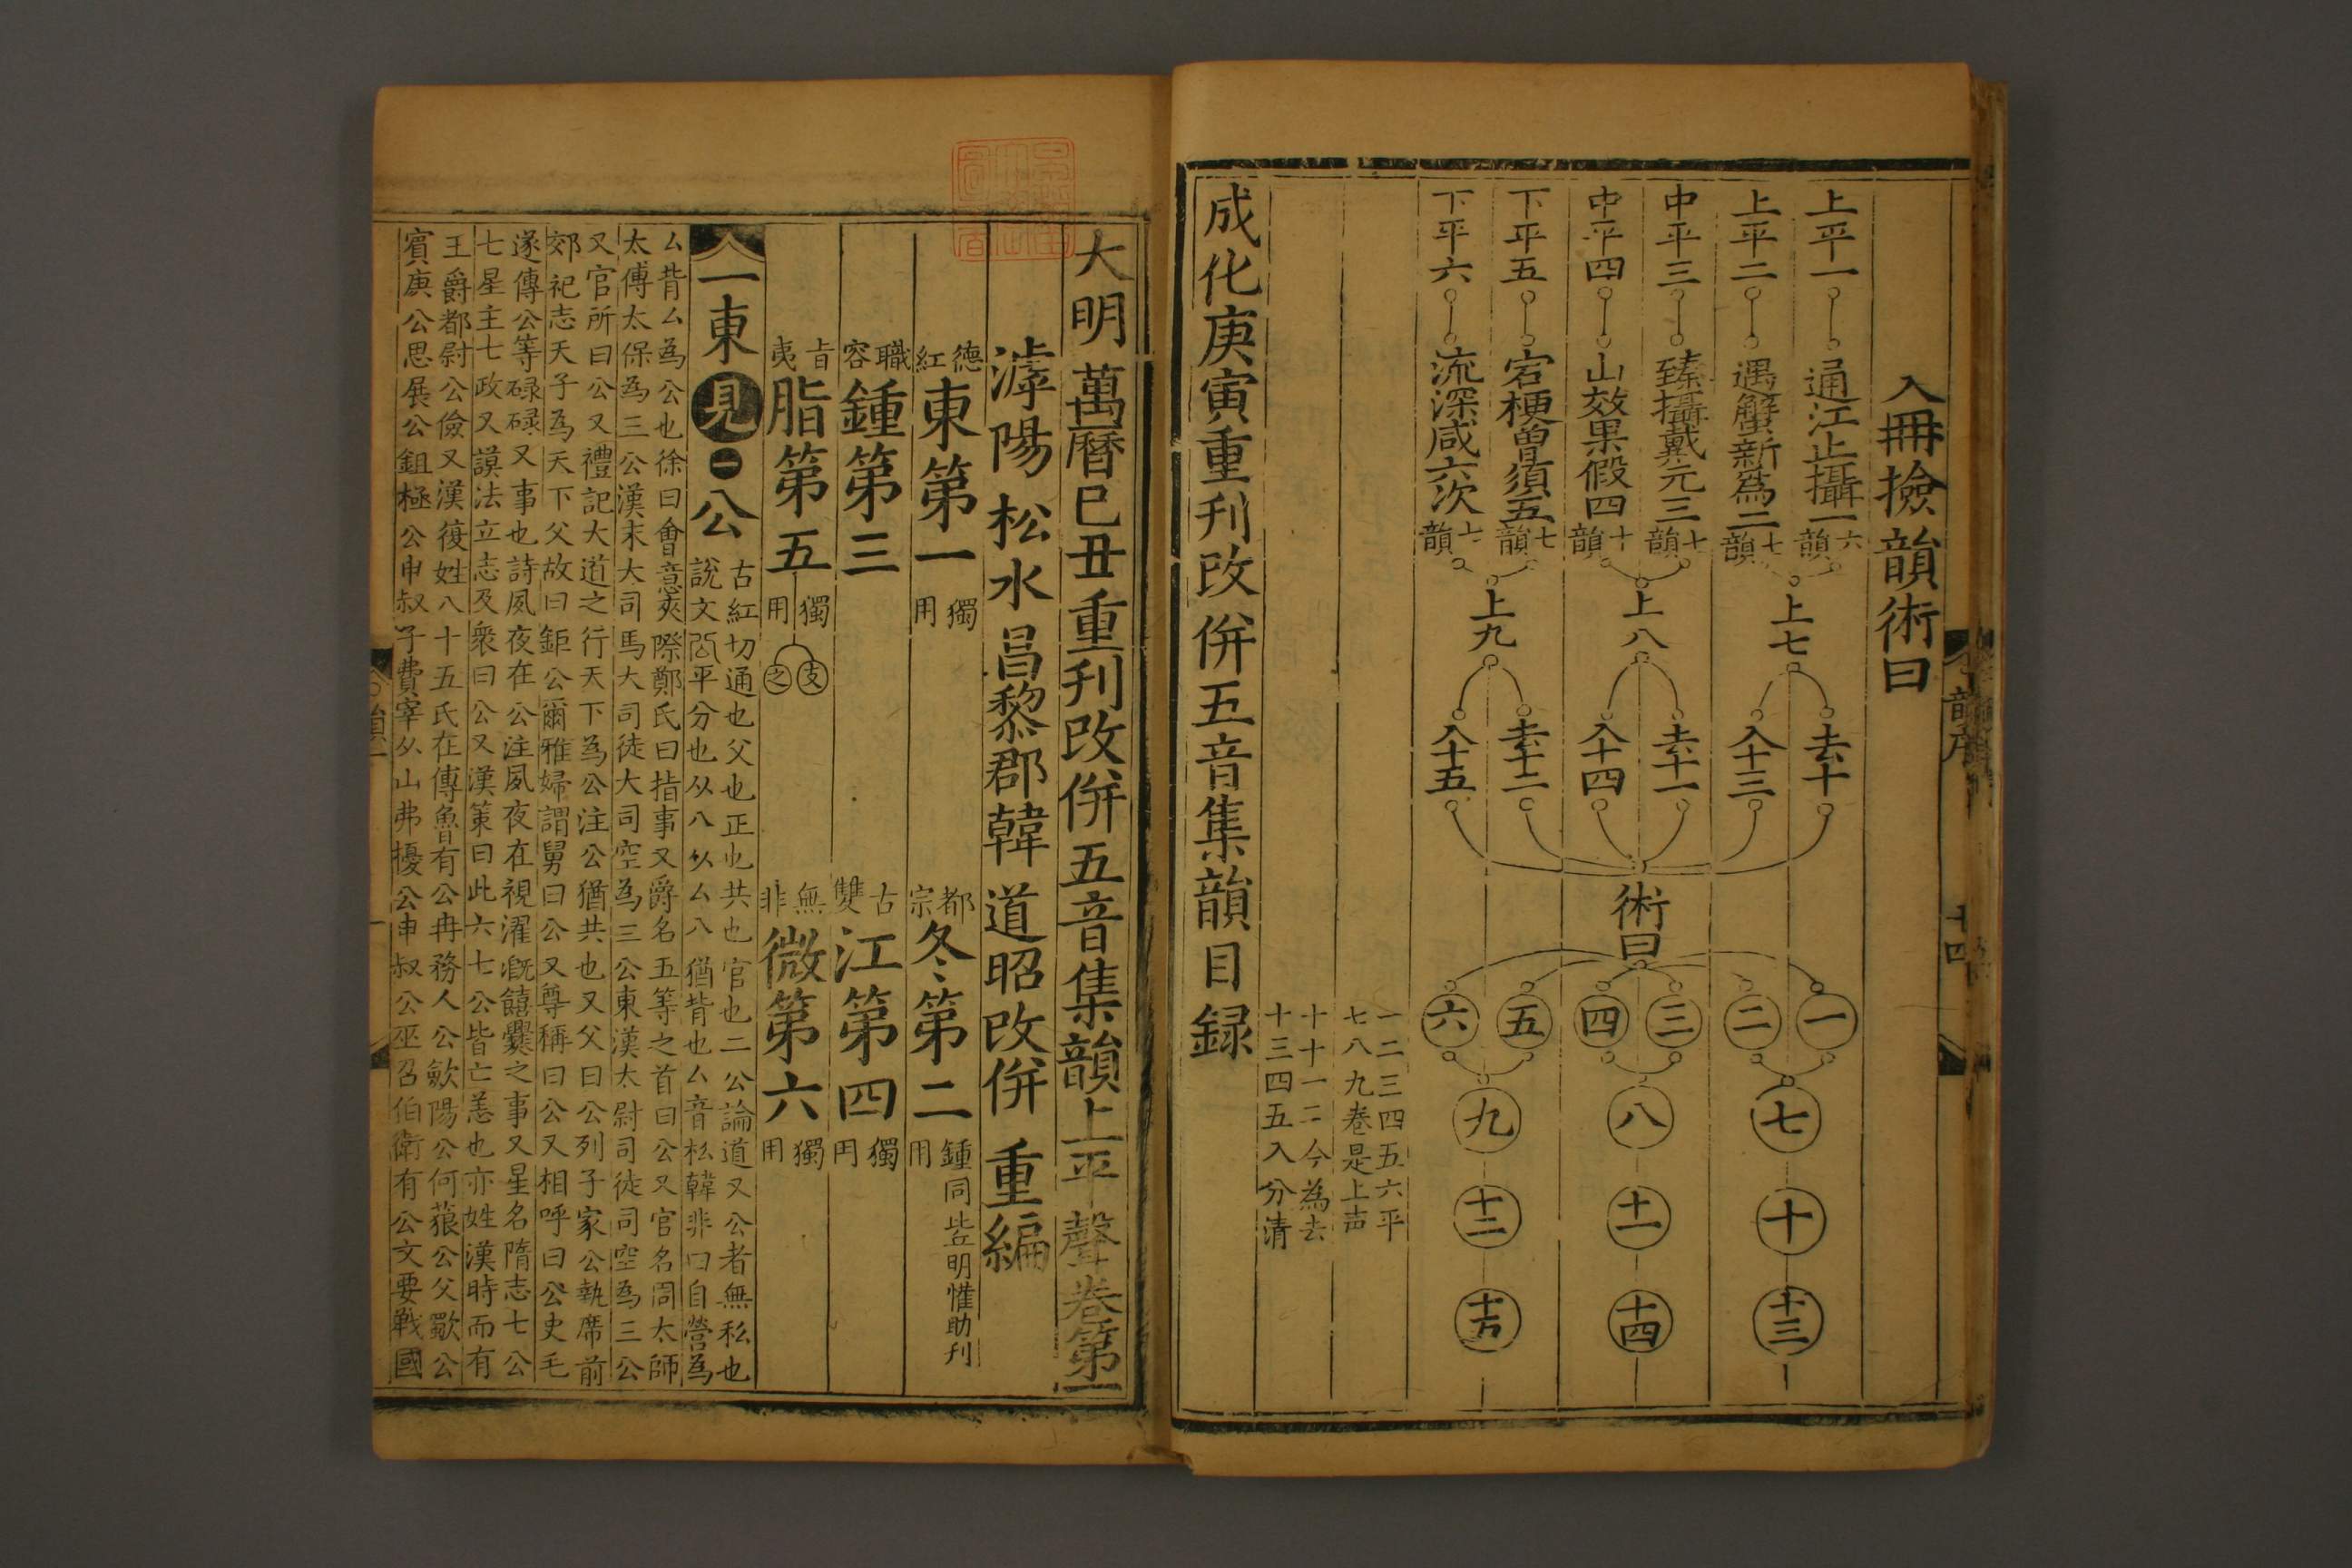 入冊撿韻術曰
上平一 通江止攝一 六韻
上平二 遇蟹新為二 七韻
中平三 臻攝戴元三 七韻
中平四 山效果假四 十韻
下平五 宕梗曽須五 七韻
下平六 流深咸六次 七韻
上七
上八
上九
去十
入十三
去十一
入十四
去十二
入十五
術曰
一
二
三
四
五
六
七
八
九
十
十一
十二
十三
十四
十五
一二三四五六平
七八九卷是上声
十十一二今為去
十三四五入分清
成化庚寅重刊改併五音集韻目録
韻序
十四
大明萬曆己丑重刊改併五音集韻上平聲卷第一
滹陽松水昌黎郡韓道昭改併重編
德紅東第一獨用
都宗冬第二鍾同用
比丘明惟助刊
職容鍾第三
古雙江第四獨用
旨夷脂第五獨用 支之
無非微第六獨用
一東 見 一 公 古紅切通也父也正也共也官也二公論道又公者無私也
說文公平分也从八从厶八猶背也厶音私韓非曰自營為
厶背厶為公也徐曰會意夾際鄭氏曰指事又爵名五等之首曰公又官名周太師
太傅太保為三公漢末大司馬大司徒大司空為三公東漢太尉司徒司空為三公
又官所曰公又禮記大道之行天下為公注公猶共也又父曰公列子家公執席前
郊祀志天子為天下父故曰鉅公爾雅婦謂舅曰公又尊稱曰公又相呼曰公史毛
遂傳公等碌碌又事也詩夙夜在公注夙夜在視濯溉饎爨之事又星名隋志七公
七星主七政又謨法立志及衆曰公又漢策曰此六七公皆亡恙也亦姓漢時而有
王爵都尉公儉又漢復姓八十五氏在傳魯有公冉務人公歛陽公何藐公父歜公
賓庚公思展公鉏極公申叔子費宰公山弗擾公申叔公巫召伯衛有公文要戰國